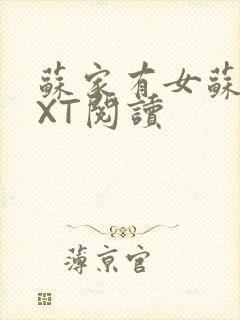 蘇家有女蘇
XT閱讀
薄京官